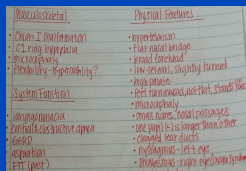 Musculoskeletal
• Chiari I malformation
• C1 ring hypoplasia
• microcephaly
• flexibility-hypermobility?
System Function
• laryngomalacia
• central/obstructive apnea
• GERD
• aspiration
Physical Features
• hypertelorism
• flat nasal bridge
• broad forehead
• low set ears, slightly turned
• high palate
• feet turn inward, not flat, stands
• microcephaly
• small nares, nasal passages
• one pupil (L) is larger than other
• clogged tear ducts
• nystagmus - left eye